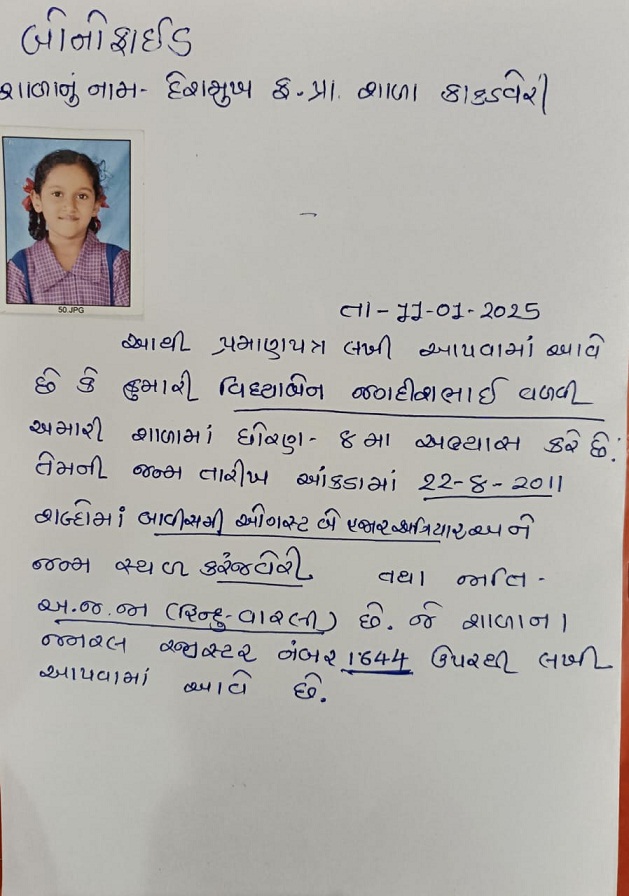 બોનોફાઈડ
શાળાનું નામ- દેશમુખ ફ.પ્રા. શાળા કાકડવેરી
50.JPG
તા-11-01-2025
આથી પ્રમાણપત્ર લખી આપવામાં આવે
છે કે કુમારી વિધ્યાબેન જગદીશભાઈ વળવી
અમારી શાળામાં ધોરણ- ૪મા અભ્યાસ કરે છે.
તેમની જન્મ તારીખ આંકડામાં 22-8-2011
શબ્દોમાં બાવીસમી ઓગસ્ટ બે હજાર અગિયાર અને
જન્મ સ્થળ કરંજવેરી તથા જાતિ-
અ.જ.જા (હિન્દુ-વારલી) છે. જે શાળાના
જનરલ રજીસ્ટર નંબર 1644 ઉપરથી લખી
આપવામાં આવે છે.